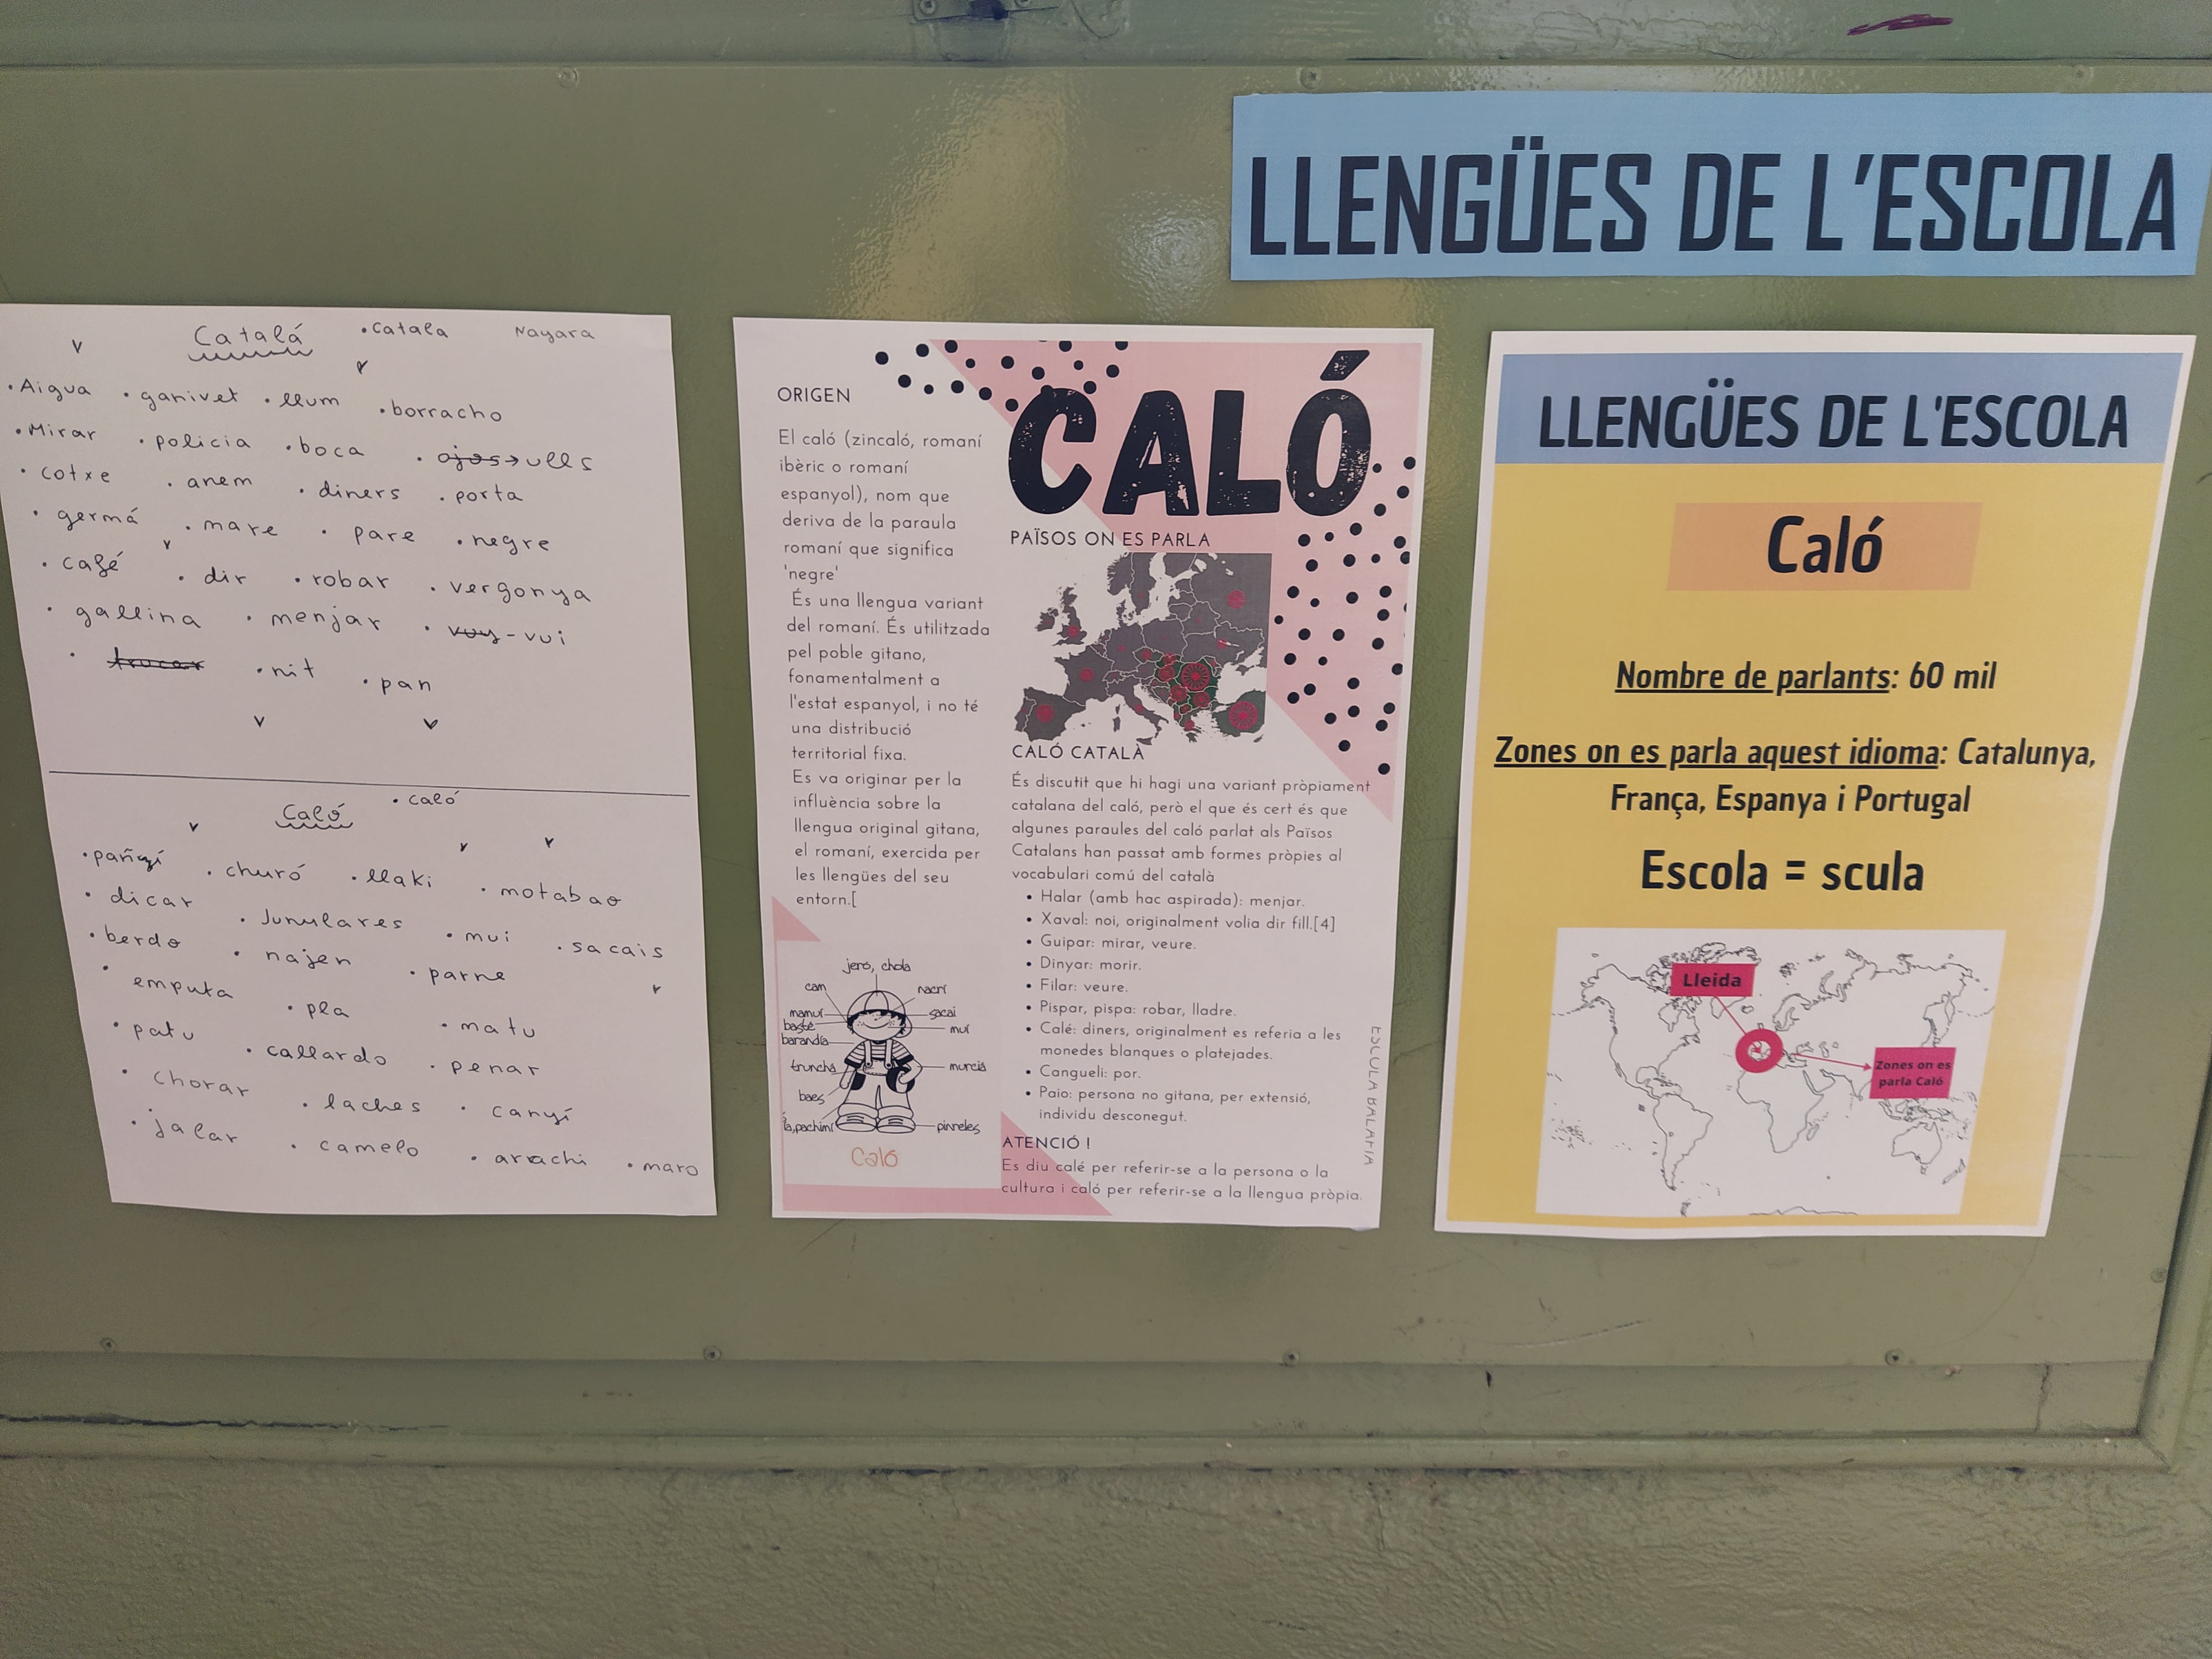 LLENGÜES DE L'ESCOLA
Catalá
• Catala
Nayara
• Aigua • ganivet • llum • borracho
• Mirar • policia • boca • ojos → ulls
• cotxe • anem • diners • porta
• germá • mare • pare • negre
• café • dir • robar • vergonya
• gallina • menjar • voy - vui
• trucar • nit • pan
Caló
• caló
• pañyí • churó • llaki • motabao
• dicar • Junulares • mui • sacais
• berdo • najen • parne
• emputa • pla • matu
• patu • callardo • penar
• chorar • laches • canyí
• jalar • camelo • arrachi • maro
CALÓ
ORIGEN
El caló (zincaló, romaní
ibèric o romaní
espanyol), nom que
deriva de la paraula
romaní que significa
'negre'
És una llengua variant
del romaní. És utilitzada
pel poble gitano,
fonamentalment a
l'estat espanyol, i no té
una distribució
territorial fixa.
Es va originar per la
influència sobre la
llengua original gitana,
el romaní, exercida per
les llengües del seu
entorn.[
jeró, chola
cam
nacrí
mamuí
sacai
basté
muí
barandia
truncha
murciá
baes
pinreles
Caló
PAÏSOS ON ES PARLA
CALÓ CATALÀ
És discutit que hi hagi una variant pròpiament
catalana del caló, però el que és cert és que
algunes paraules del caló parlat als Països
Catalans han passat amb formes pròpies al
vocabulari comú del català
• Halar (amb hac aspirada): menjar.
• Xaval: noi, originalment volia dir fill.[4]
• Guipar: mirar, veure.
• Dinyar: morir.
• Filar: veure.
• Pispar, pispa: robar, lladre.
• Calé: diners, originalment es referia a les
monedes blanques o platejades.
• Cangueli: por.
• Paio: persona no gitana, per extensió,
individu desconegut.
ATENCIÓ !
Es diu calé per referir-se a la persona o la
cultura i caló per referir-se a la llengua pròpia.
ESCULA BALAFIA
LLENGÜES DE L'ESCOLA
Caló
Nombre de parlants: 60 mil
Zones on es parla aquest idioma: Catalunya,
França, Espanya i Portugal
Escola = scula
Lleida
Zones on es
parla Caló